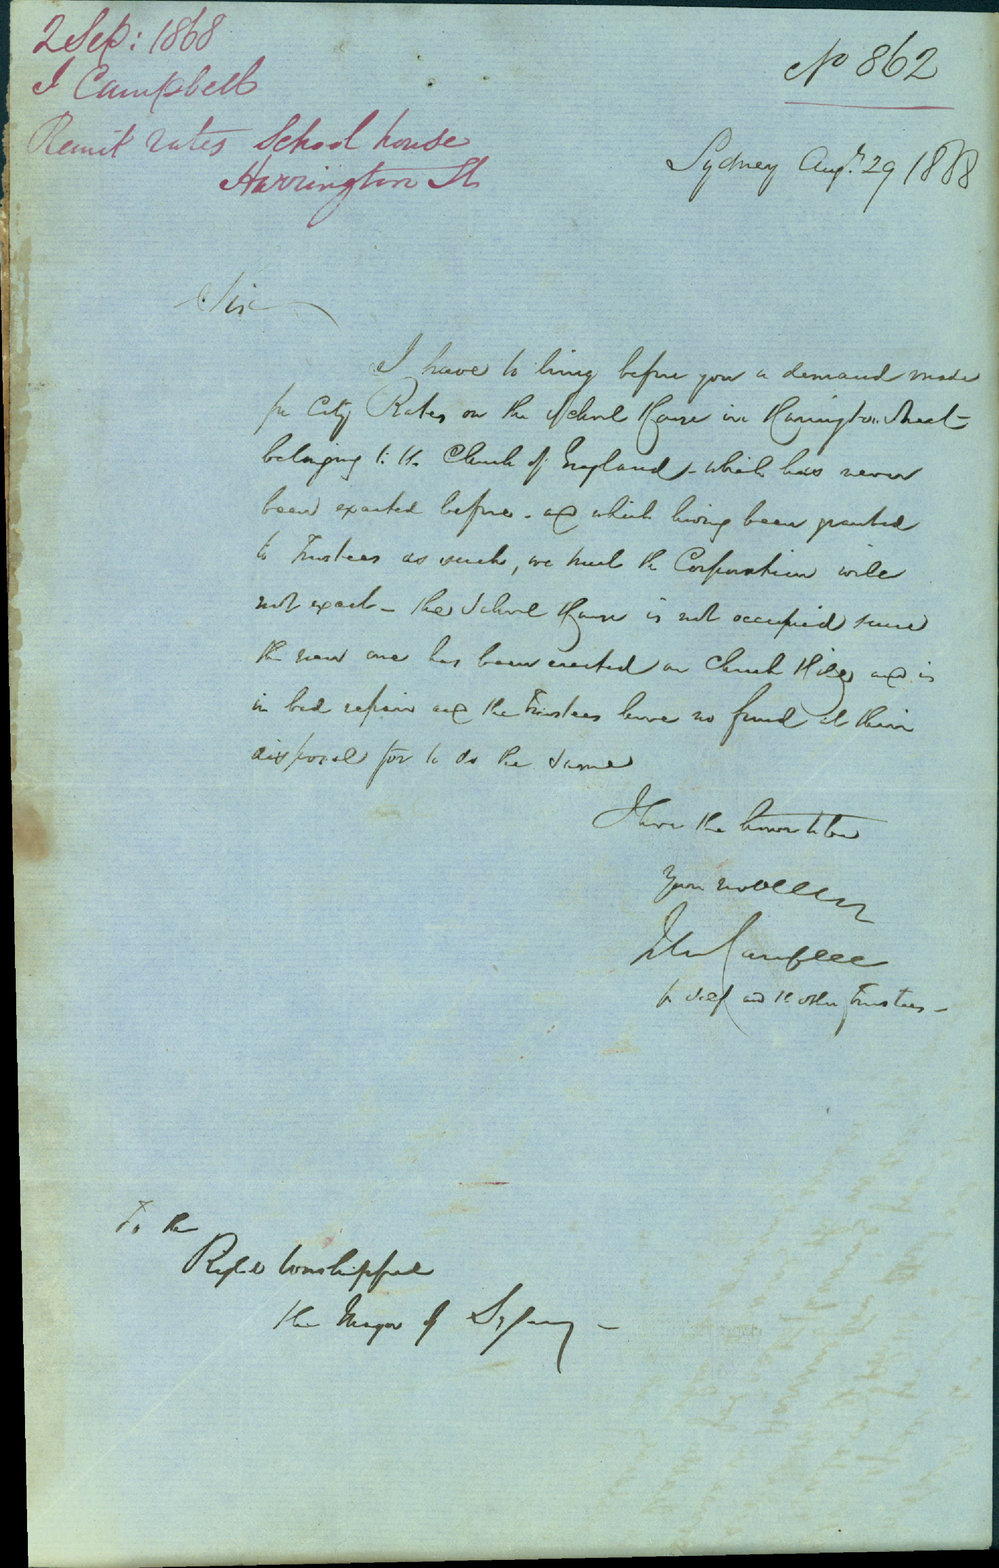 2 Sep: 1868
J Campbell
Remit rates School house
Harrington St
No 862
Sydney Augt. 29 1868
Sir
I have to bring before you a demand made
for City Rates on the School House in Harrington Street
belonging to the Church of England - which has never
been exacted before - and which having been granted
to Trustees as such, we trust the Corporation will
not exact - the School House is not occupied since
the new one has been erected on Church Hill and is
in bad repair and the Trustees have no fund at their
disposal for to do the same
I have the honor to be
Your
John Campbell
for self and the other Trustees -
To the
Right Worshipful
the Mayor of Sydney -